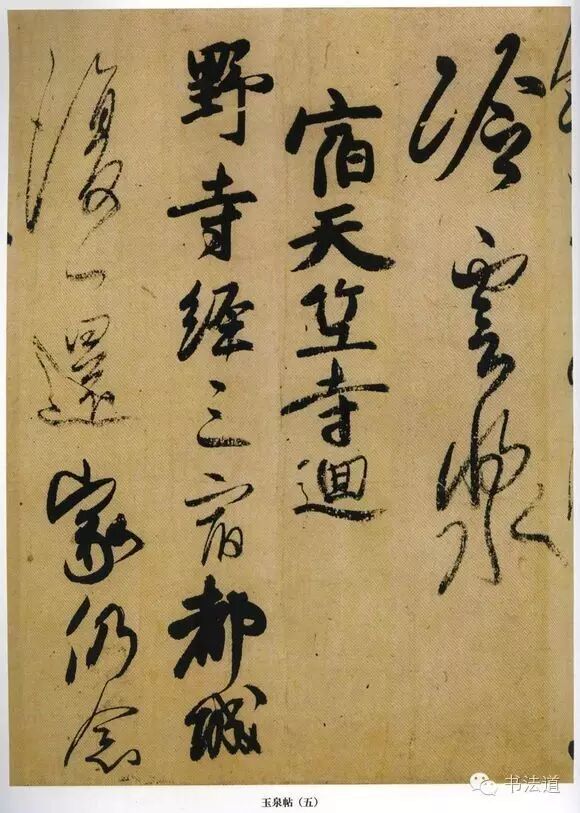 冷雲漿
宿天竺寺迴
野寺經三宿都城
復一還家仍念
书法道
玉泉帖（五）